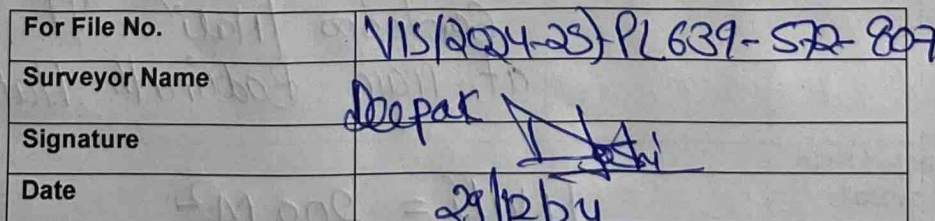 For File No. VIS(2024-25)-PL639-572-807
Surveyor Name Deepak
Signature
Date 29/12/24